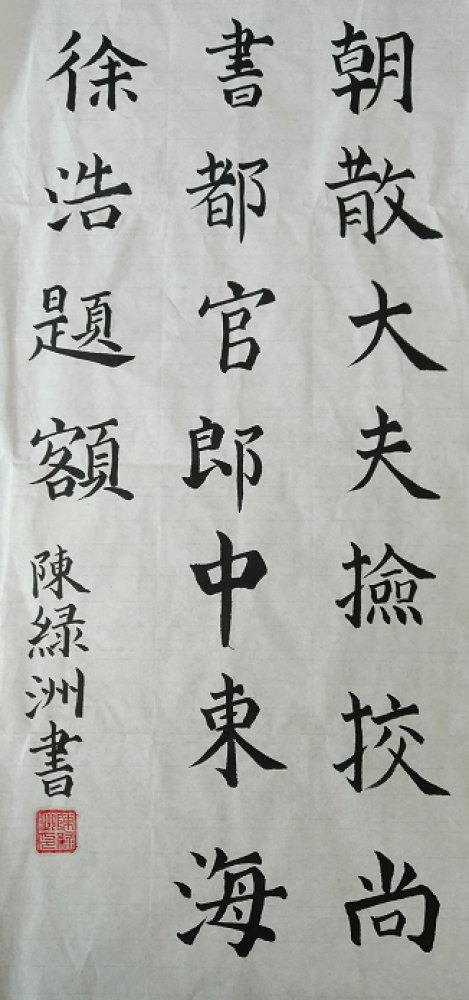 朝散大夫撿挍尚
書都官郎中東海
徐浩題額
陳緑洲書